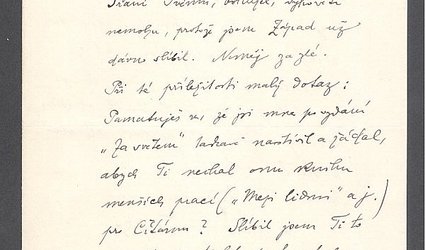 Přání Tvému, bohužel, vyhověti
nemohu, protože jsem Západ už
dávno slíbil. Neměj za zlé.
Při té příležitosti malý dotaz:
Pamatuješ se, že jsi mne po vydání
„Za světem" navštívil a žádal,
abych Ti nechal onu knihu
menších prací („Mezi lidmi" a j.)
pro Čítárnu? Slíbil jsem Ti to